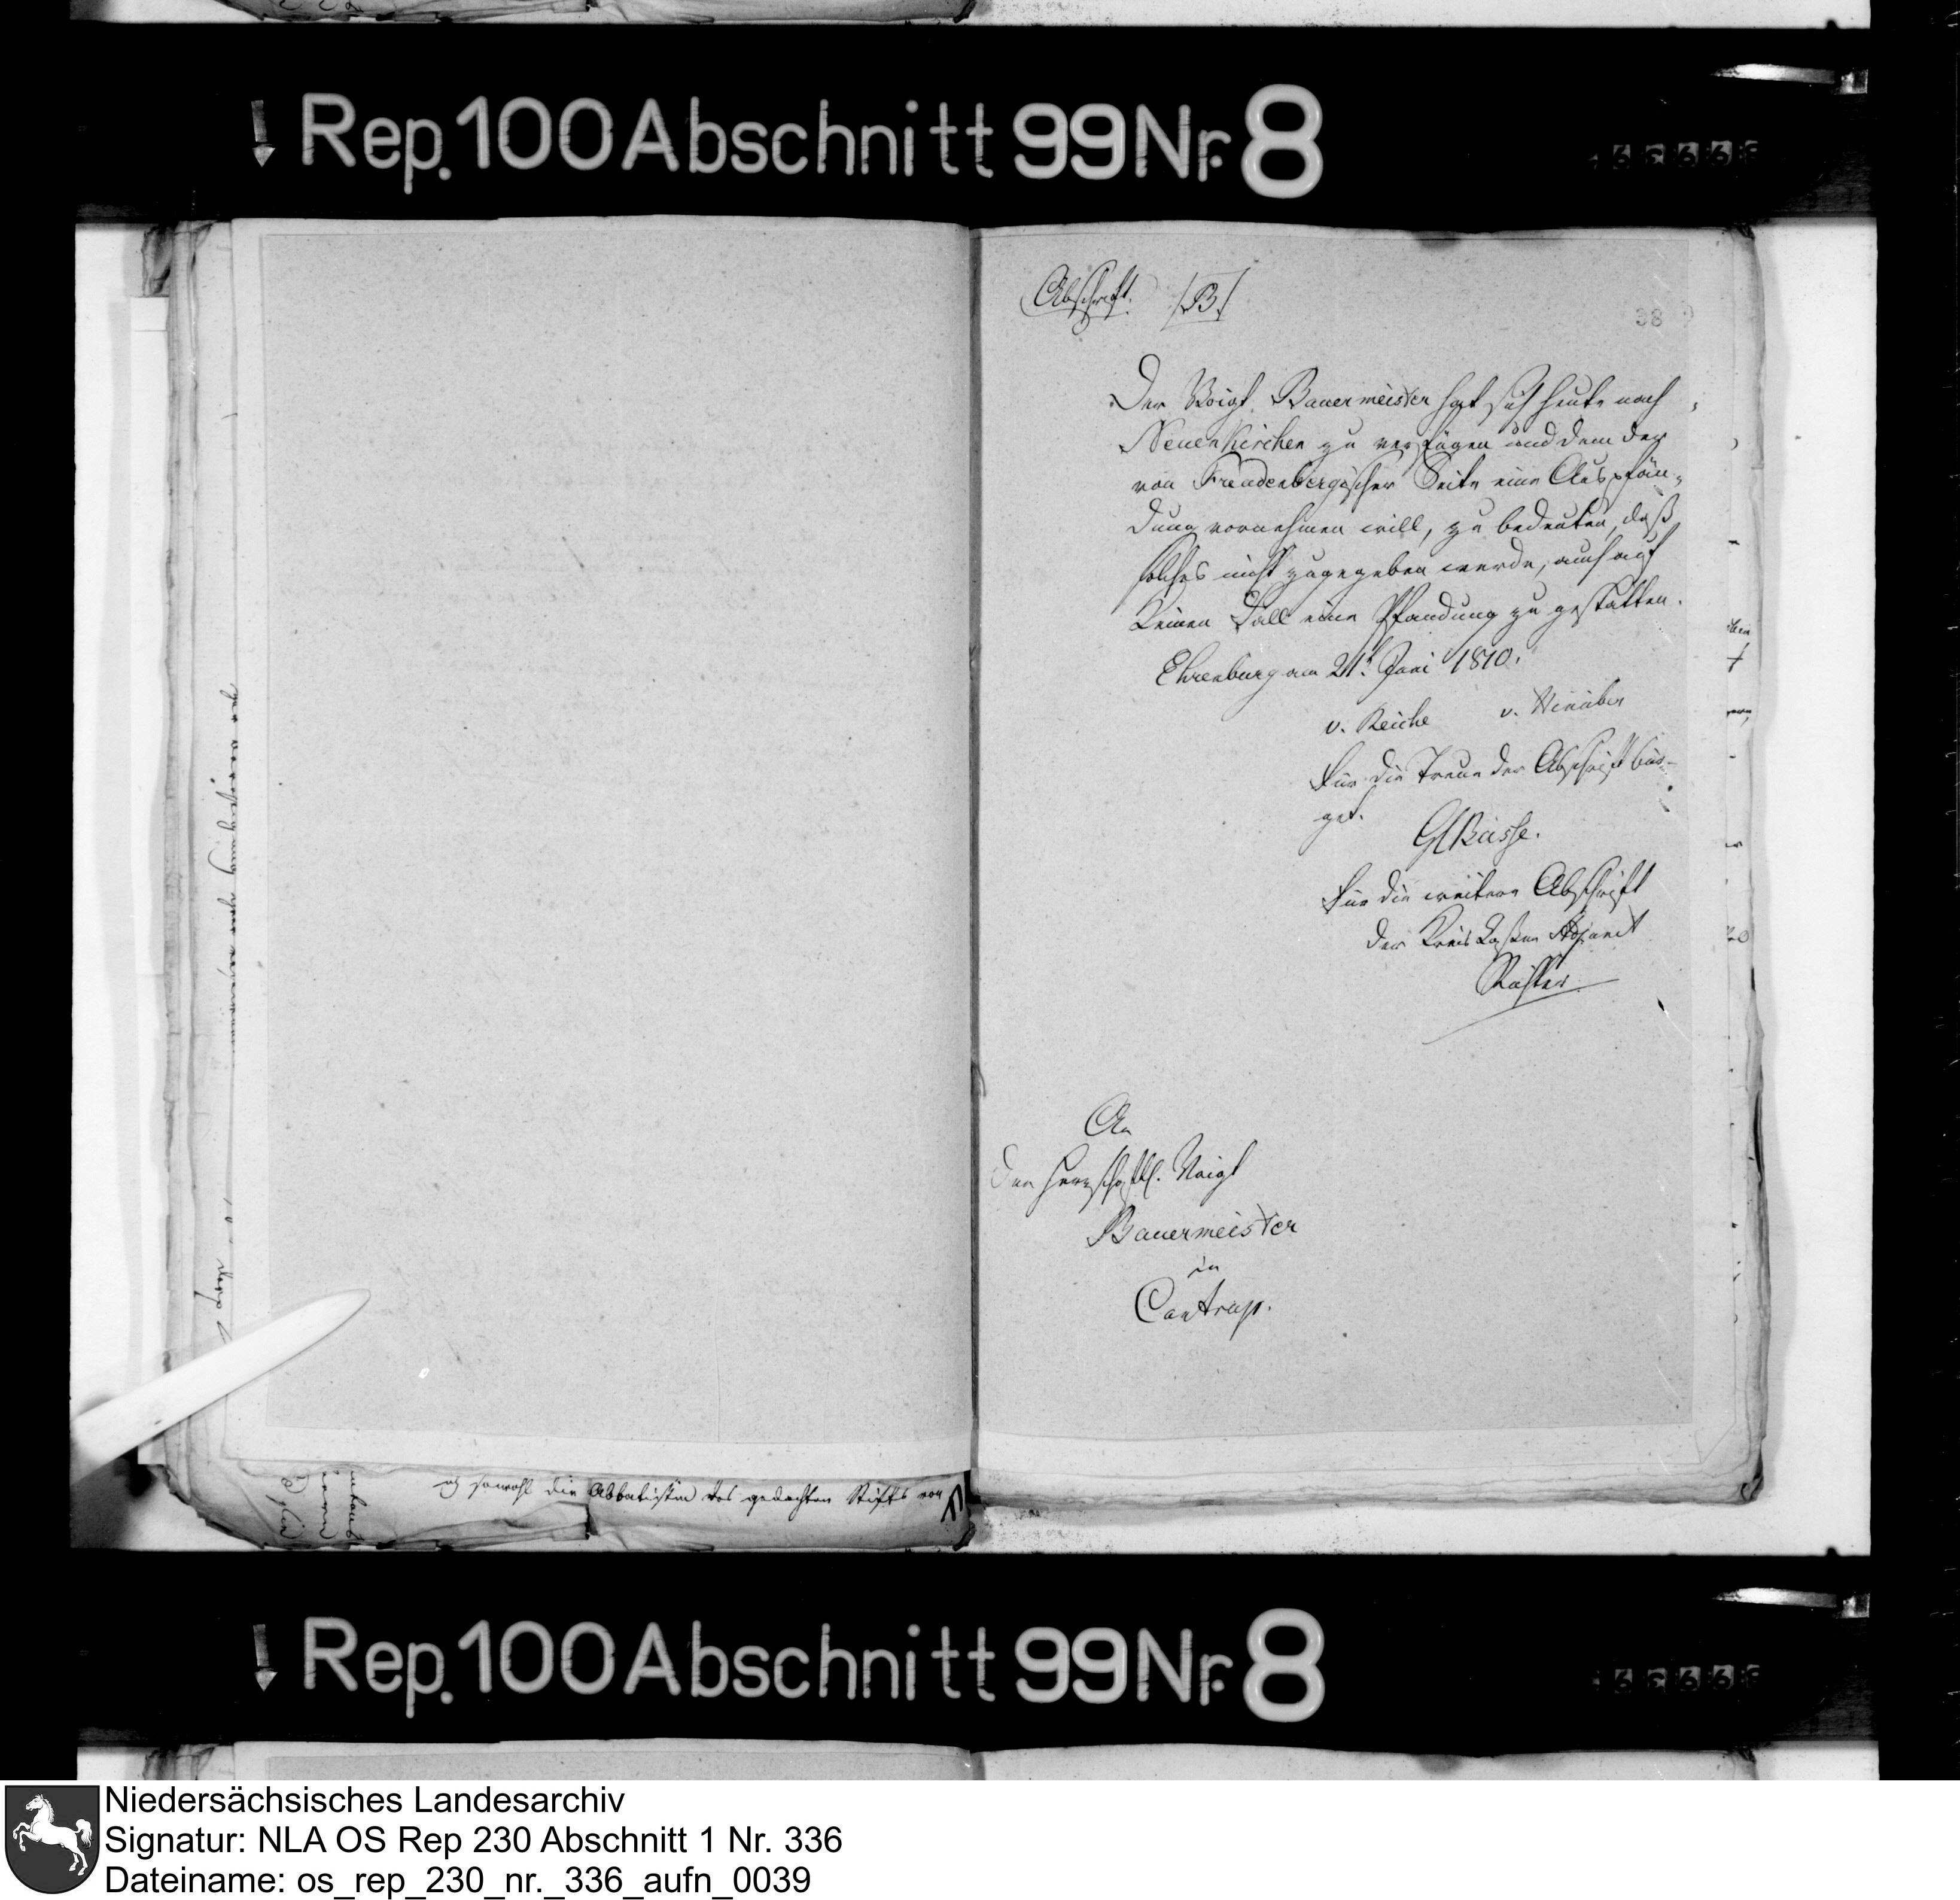 Rep. 100 Abschnitt 99 Nr. 8
Abschrift. /B./
38
Der Voigt Bauermeister hat sich heute nach
Neuenkirchen zu verfügen und dem der
von Freudenbergischer Seite eine Auspfän-
dung vornehmen will, zu bedeuten, daß
solches nicht zugegeben werde, auch auf
keinen Fall eine Pfandung zu gestatten.
Ehrenburg am 21t. Juni 1810.
v. Reiche v. Hinüber
Für die Treue der Abschrift bür-
get.
Für die weitere Abschrift
der Kreis Kaßen Adjunct
An
den herrschaftl. Voigt
Bauermeister
in
Cantrup.
sowohl die Abbatissin des gedachten Stifts von
Rep. 100 Abschnitt 99 Nr. 8
Niedersächsisches Landesarchiv
Signatur: NLA OS Rep 230 Abschnitt 1 Nr. 336
Dateiname: os_rep_230_nr._336_aufn_0039